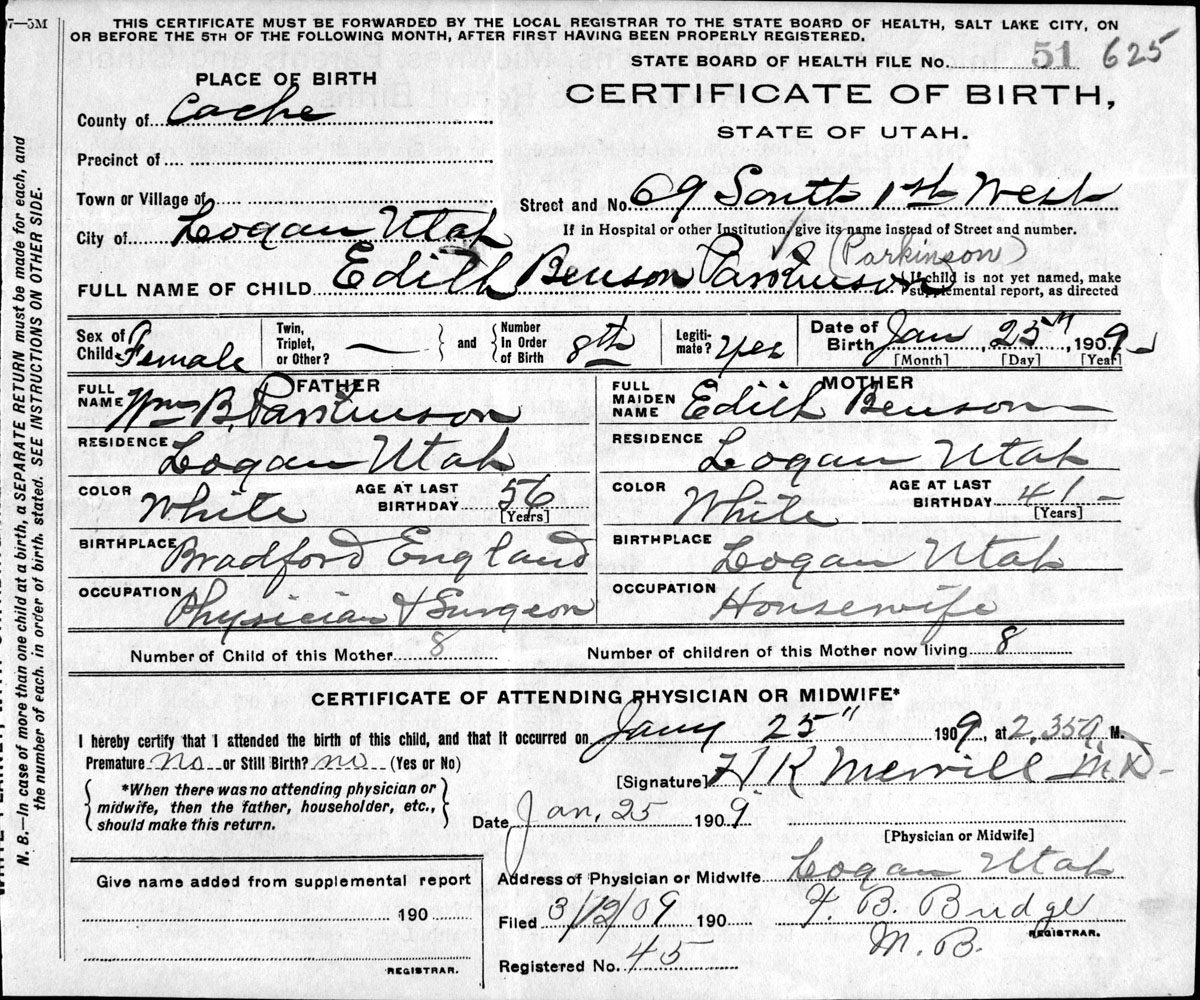 7—5M
THIS CERTIFICATE MUST BE FORWARDED BY THE LOCAL REGISTRAR TO THE STATE BOARD OF HEALTH, SALT LAKE CITY, ON
OR BEFORE THE 5TH OF THE FOLLOWING MONTH, AFTER FIRST HAVING BEEN PROPERLY REGISTERED.
STATE BOARD OF HEALTH FILE No. 51 625
PLACE OF BIRTH
CERTIFICATE OF BIRTH,
STATE OF UTAH.
County of Cache
Precinct of
Town or Village of
Street and No. 69 South 1st West
City of Logan Utah
If in Hospital or other Institution, give its name instead of Street and number.
(Parkinson)
FULL NAME OF CHILD Edith Benson Parkinson
{ If child is not yet named, make
supplemental report, as directed
Sex of Child Female
Twin, Triplet, or Other? —
and
Number In Order of Birth 8th
Legiti-mate? Yes
Date of Birth Jan 25", 1909
[Month] [Day] [Year]
FATHER
FULL NAME Wm B. Parkinson
RESIDENCE Logan Utah
COLOR White
AGE AT LAST BIRTHDAY 56
[Years]
BIRTHPLACE Bradford England
OCCUPATION Physician & Surgeon
MOTHER
FULL MAIDEN NAME Edith Benson
RESIDENCE Logan Utah
COLOR White
AGE AT LAST BIRTHDAY 41
[Years]
BIRTHPLACE Logan Utah
OCCUPATION Housewife
Number of Child of this Mother 8
Number of children of this Mother now living 8
CERTIFICATE OF ATTENDING PHYSICIAN OR MIDWIFE*
I hereby certify that I attended the birth of this child, and that it occurred on Jany 25" 1909, at 2,35 M.
Premature no or Still Birth? no (Yes or No)
[Signature] H K Merrill MD
{ *When there was no attending physician or
midwife, then the father, householder, etc.,
should make this return. }
Date Jan, 25 1909
[Physician or Midwife]
Give name added from supplemental report
190
REGISTRAR.
Address of Physician or Midwife Logan Utah
Filed 3/12/09 190
F. B. Budge
REGISTRAR.
M. B.
Registered No. 45
N. B.—In case of more than one child at a birth, a SEPARATE RETURN must be made for each, and
the number of each, in order of birth, stated. SEE INSTRUCTIONS ON OTHER SIDE.